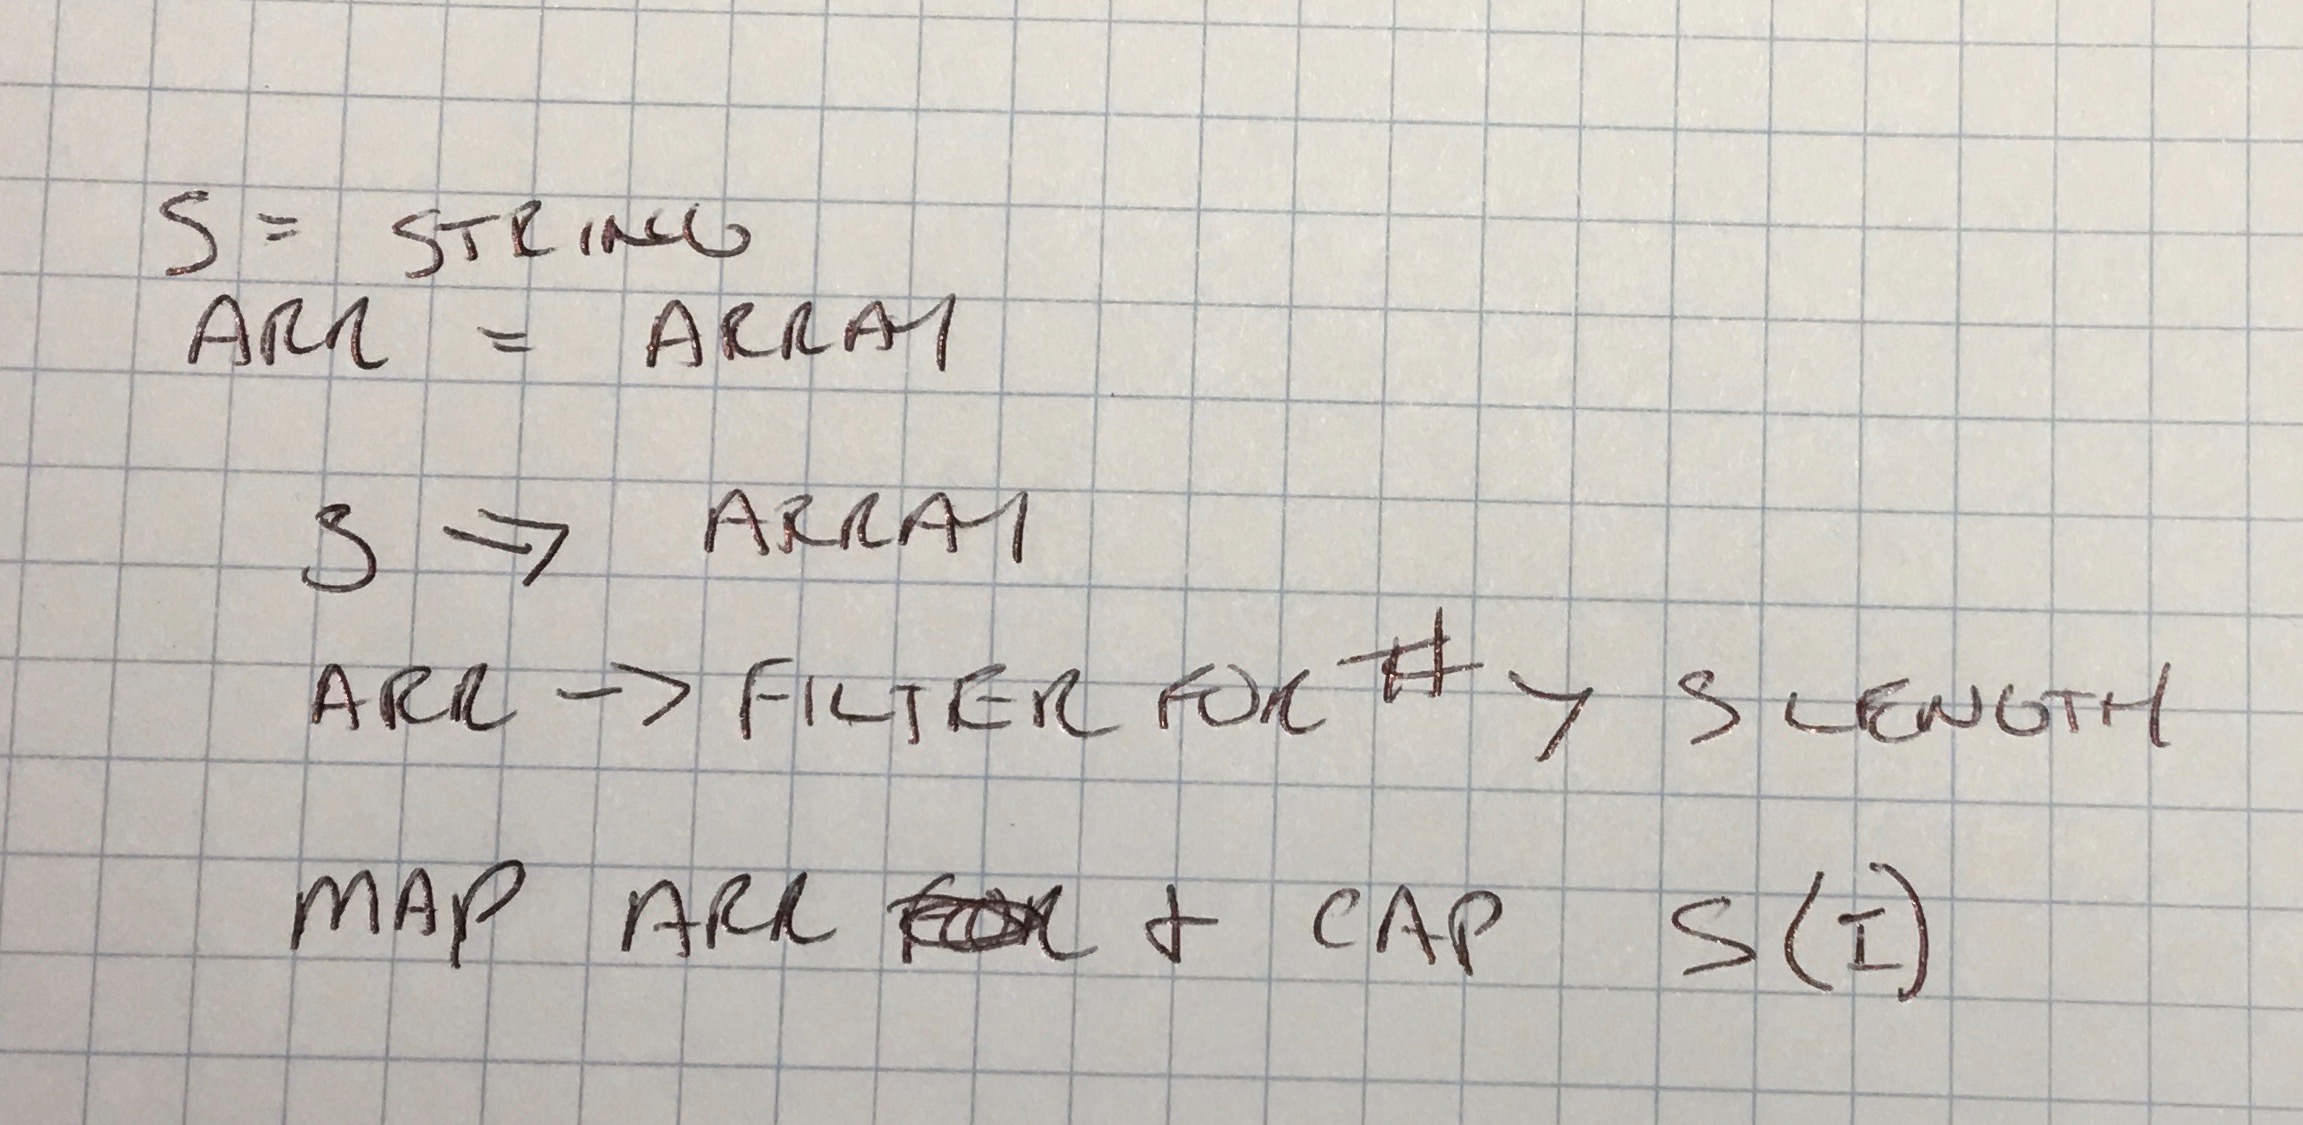 S = STRING
ARR = ARRAY
S => ARRAY
ARR -> FILTER FOR # > S LENGTH
MAP ARR + CAP S(I)